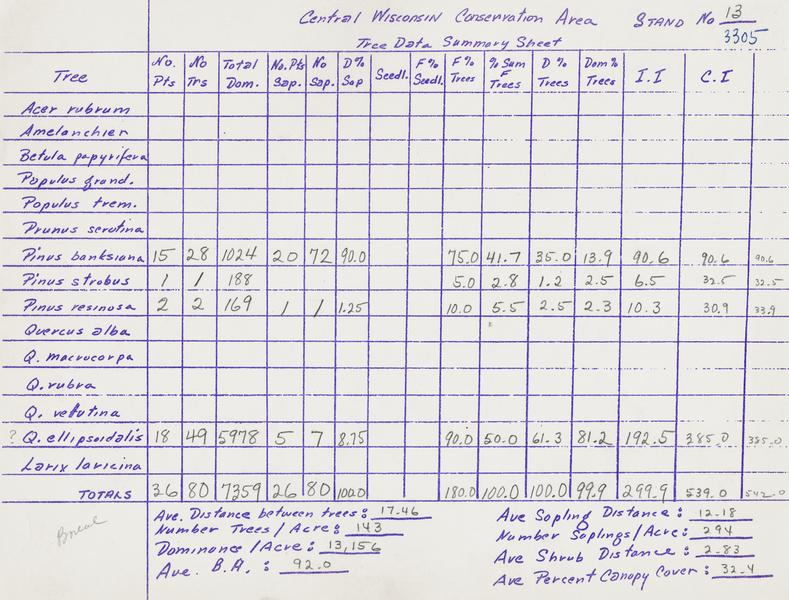 Central Wisconsin Conservation Area STAND No 13
Tree Data Summary Sheet 3305
Tree No. Pts No Trs Total Dom. No. Pts Sap. No Sap. D% Sap Seedl. F% Seedl. F% Trees % Sum F Trees D% Trees Dom% Trees I.I C.I
Acer rubrum
Amelanchier
Betula papyrifera
Populus grand.
Populus trem.
Prunus serotina
Pinus banksiana 15 28 1024 20 72 90.0 75.0 41.7 35.0 13.9 90.6 90.6 90.6
Pinus strobus 1 1 188 5.0 2.8 1.2 2.5 6.5 32.5 32.5
Pinus resinosa 2 2 169 1 1 1.25 10.0 5.5 2.5 2.3 10.3 30.9 33.9
Quercus alba
Q. macrocorpa
Q. rubra
Q. velutina
? Q. ellipsoidalis 18 49 5978 5 7 8.75 90.0 50.0 61.3 81.2 192.5 385.0 385.0
Larix laricina
TOTALS 36 80 7359 26 80 100.0 180.0 100.0 100.0 99.9 299.9 539.0 542.0
Ave. Distance between trees: 17.46
Number Trees/Acre: 143
Dominance/Acre: 13,156
Ave. B.A.: 92.0
Ave Sapling Distance: 12.18
Number Saplings/Acre: 294
Ave Shrub Distance: 2.83
Ave Percent Canopy Cover: 32.4